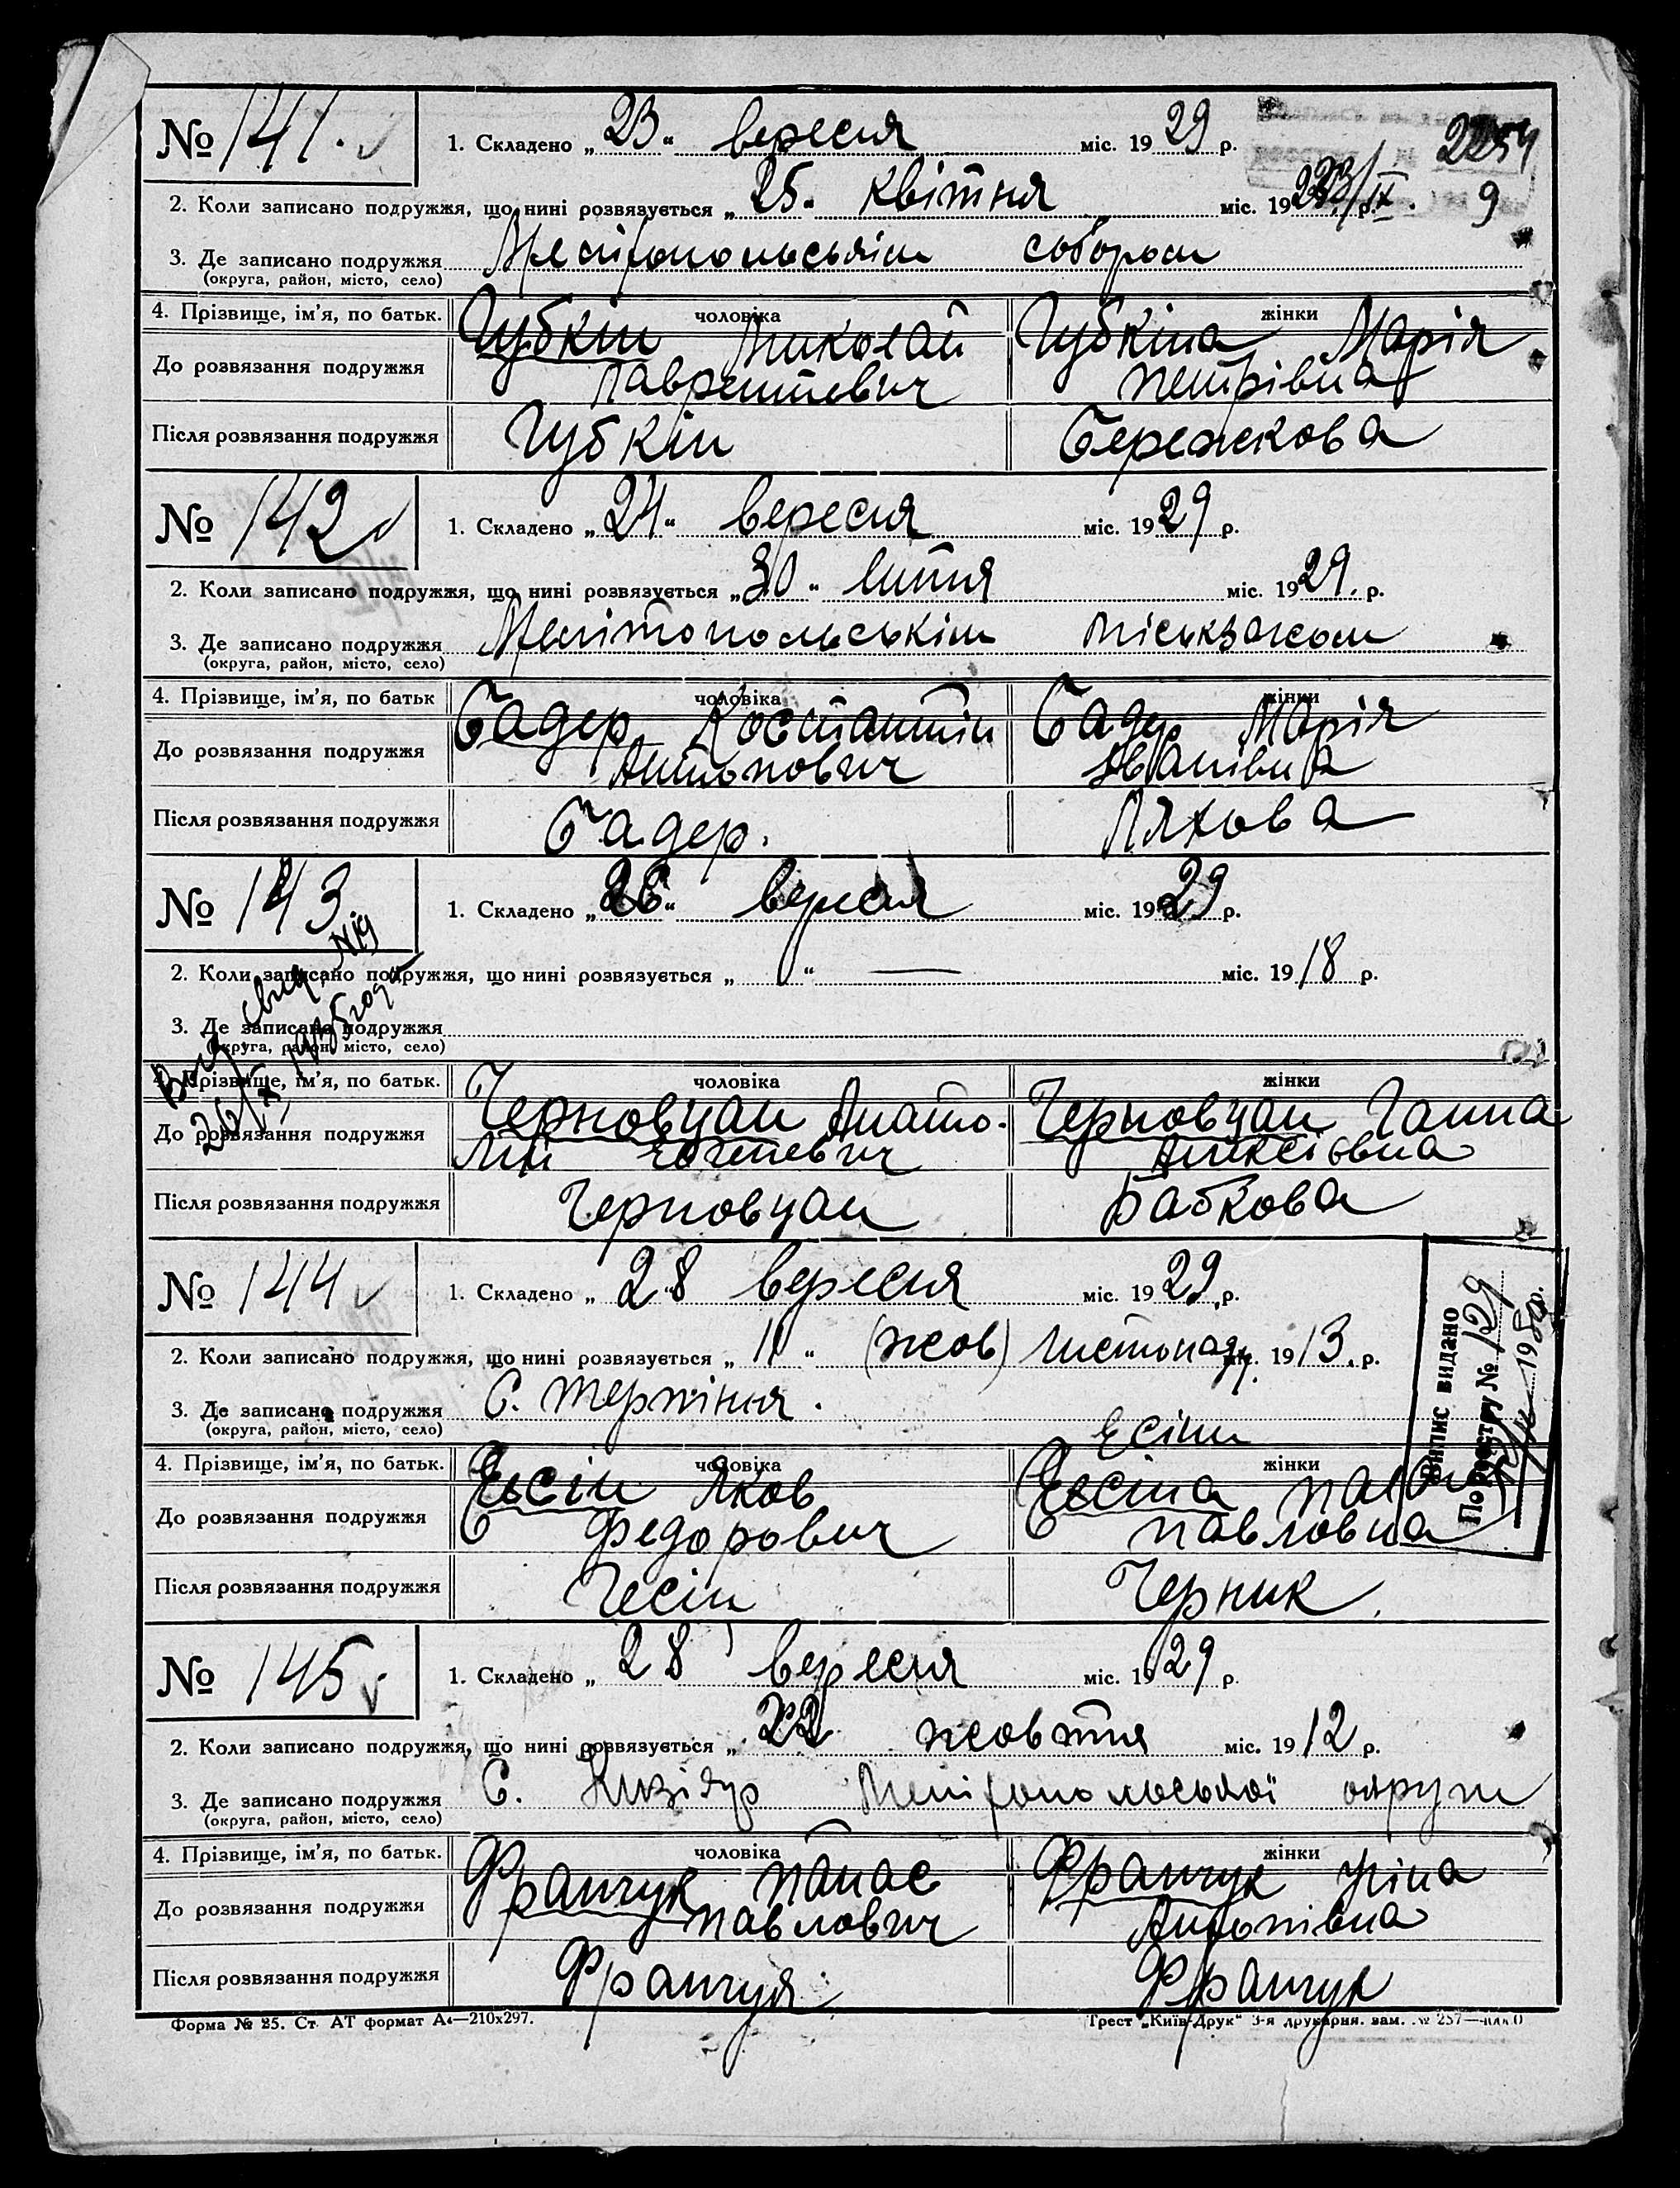 № 141.
1. Складено „23“ вересня міс. 1929 р.
2254
2. Коли записано подружжя, що нині розвязується „25“ квітня міс. 19 р.
23/IX. 9
3. Де записано подружжя Мелітопольськім собором
(округа, район, місто, село)
4. Прізвище, ім'я, по батьк. чоловіка жінки
До розвязання подружжя Губкін Миколай Губкіна Марія
Лаврентевич Петрівна
Після розвязання подружжя Губкін Бережкова
№ 142
1. Складено „24“ вересня міс. 1929 р.
2. Коли записано подружжя, що нині розвязується „30“ липня міс. 1929. р.
3. Де записано подружжя Мелітопольськім міськзагсом
(округа, район, місто, село)
4. Прізвище, ім'я, по батьк чоловіка жінки
До розвязання подружжя Бадер Костантін Бадер Марія
Антонович Іванівна
Після розвязання подружжя Бадер. Ляхова
№ 143
1. Складено „26“ вересня міс. 1929 р.
2. Коли записано подружжя, що нині розвязується „ “ — міс. 1918 р.
3. Де записано подружжя
(округа, район, місто, село)
свид. №19
26/X 1935 года
4. Прізвище, ім'я, по батьк. чоловіка жінки
До розвязання подружжя Черновцан Анато- Черновцан Ганна
лій Алексіовна
Після розвязання подружжя Черновцан Бабкова
№ 144
1. Складено „28 вересня міс. 1929. р.
2. Коли записано подружжя, що нині розвязується „11“ (жов) листопаду. міс. 1913. р.
3. Де записано подружжя С. Терпіння.
(округа, район, місто, село)
Єсіни
Випис видано
По реєстру № 129
1950р.
4. Прізвище, ім'я, по батьк. чоловіка жінки
До розвязання подружжя Єсін Яков Єсіна
Федорович Павловна
Після розвязання подружжя Єсін Черник.
№ 145
1. Складено „28 вересня міс. 1929 р.
2. Коли записано подружжя, що нині розвязується „22 жовтня міс. 1912 р.
3. Де записано подружжя С. Кизіяр Мелітопольської округи
(округа, район, місто, село)
4. Прізвище, ім'я, по батьк. чоловіка жінки
До розвязання подружжя Франчук Панас Франчук Уріна
Павлович Антонівна
Після розвязання подружжя Франчук Франчук
Форма № 25. Ст. АТ формат А4—210х297.
Трест „Київ-Друк“ 3-я друкарня. зам. № 257